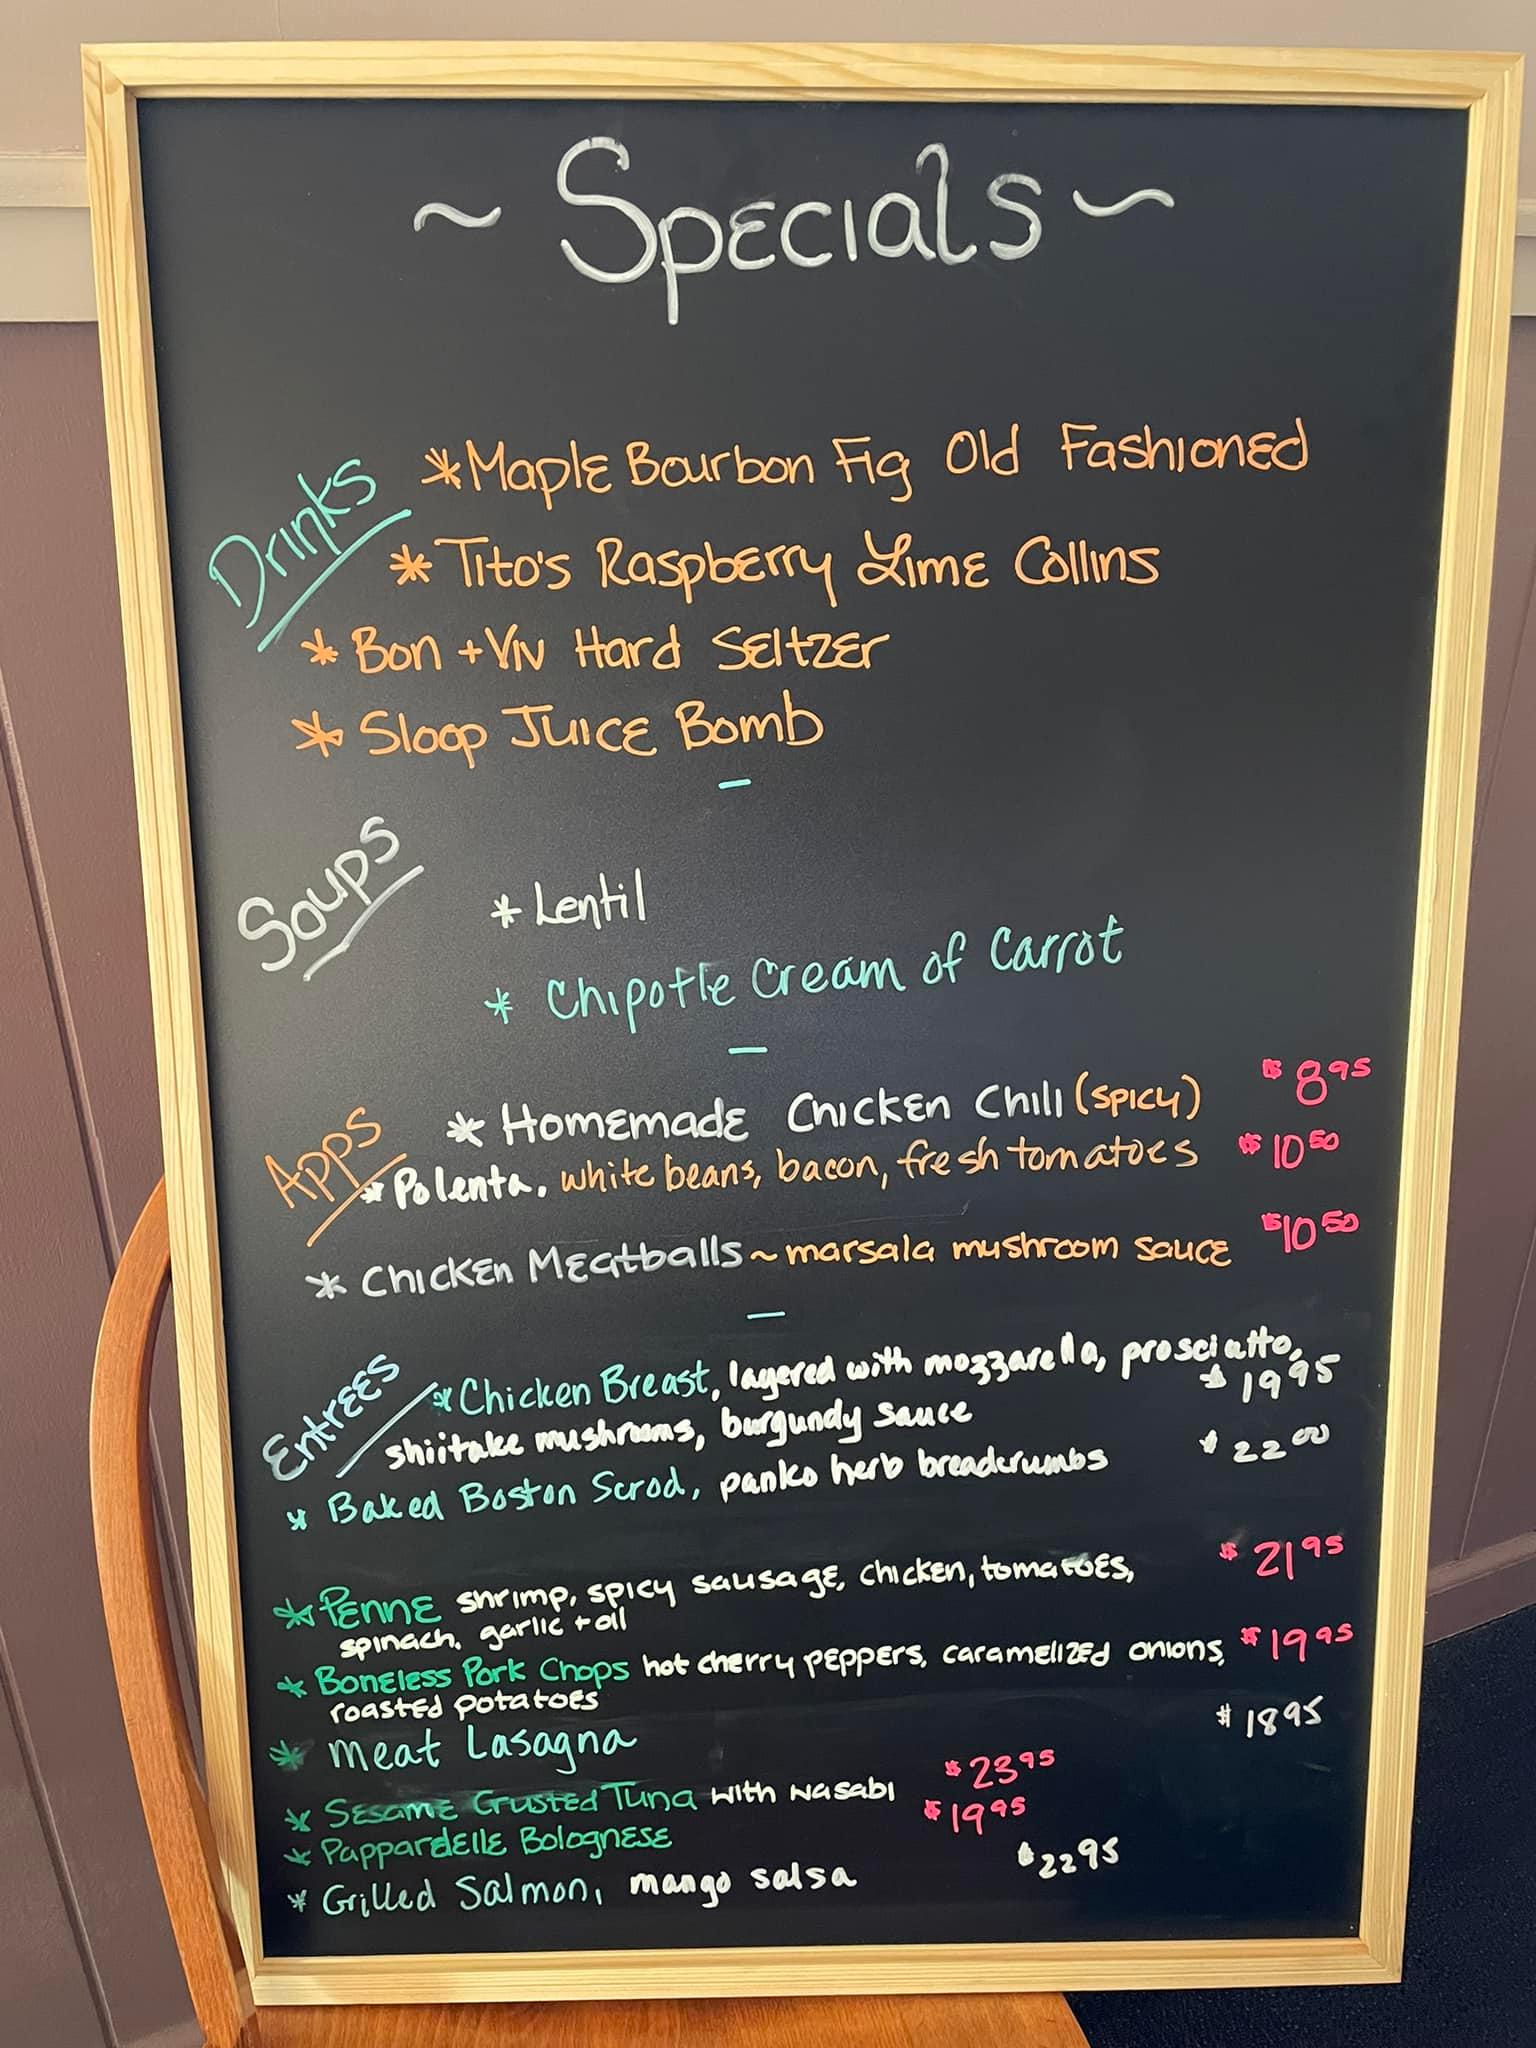 ~ Specials ~
Drinks
* Maple Bourbon Fig Old Fashioned
* Tito's Raspberry Lime Collins
* Bon + Viv Hard Seltzer
* Sloop Juice Bomb
—
Soups
* Lentil
* Chipotle Cream of Carrot
—
Apps
* Homemade Chicken Chili (spicy) $8 95
* Polenta, white beans, bacon, fresh tomatoes $10 50
* Chicken Meatballs ~ marsala mushroom sauce $10 50
—
Entrées
* Chicken Breast, layered with mozzarella, prosciatto,
shiitake mushrooms, burgundy sauce $19 95
* Baked Boston Scrod, panko herb breadcrumbs $22 00
* Penne shrimp, spicy sausage, chicken, tomatoes, $21 95
spinach, garlic + oil
* Boneless Pork Chops hot cherry peppers, caramelized onions, $19 95
roasted potatoes
* Meat Lasagna $18 95
* Sesame Crusted Tuna with wasabi $23 95
* Pappardelle Bolognese $19 95
* Grilled Salmon, mango salsa $22 95